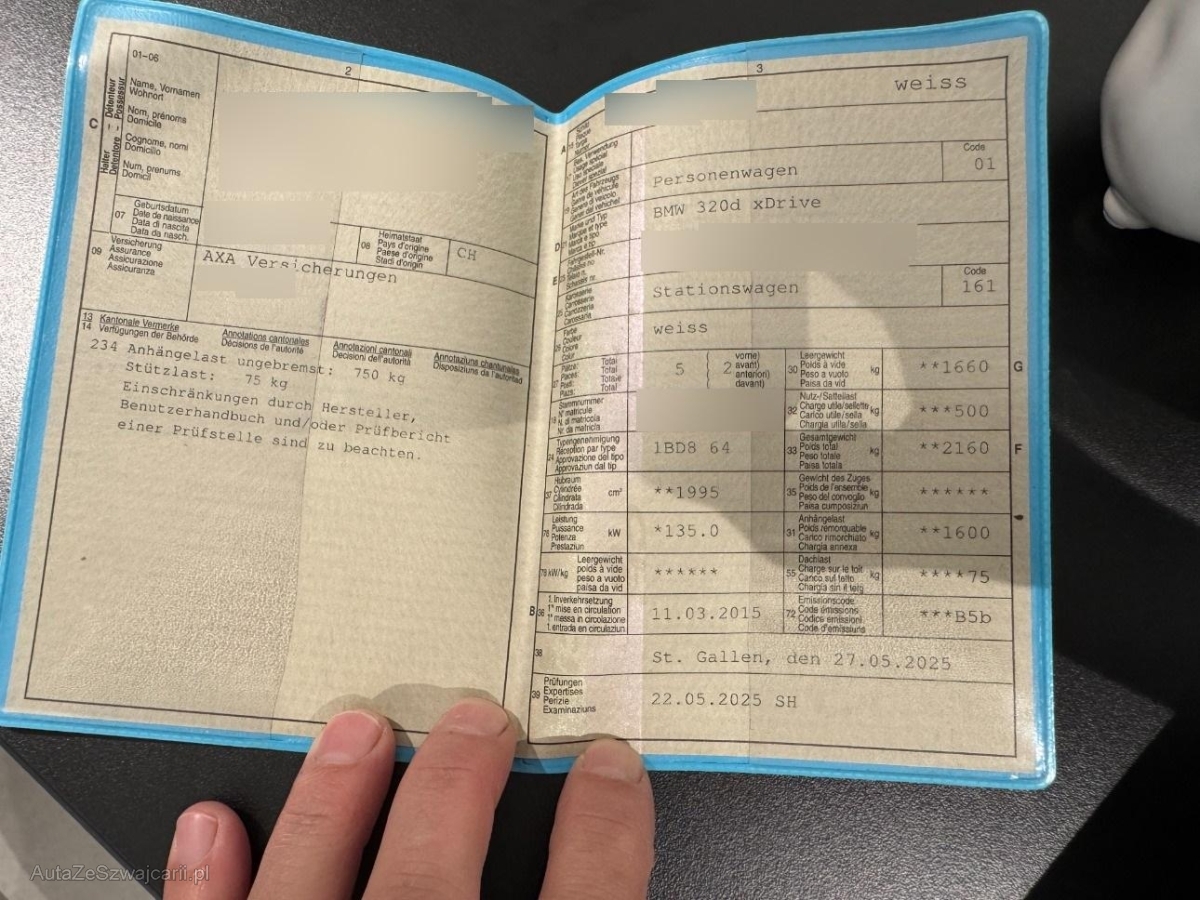 2
01-06
C
Halter Détenteur
Detentore Possessur
Name, Vornamen
Wohnort
Nom, prénoms
Domicile
Cognome, nomi
Domicilio
Num, prenums
Domicil
07
Geburtsdatum
Date de naissance
Data di nascita
Data da nasch.
08
Heimatstaat
Pays d'origine
Paese d'origine
Stadi d'origin
CH
09
Versicherung
Assurance
Assicurazione
Assicuranza
AXA Versicherungen
13 Kantonale Vermerke
14 Verfügungen der Behörde
Annotations cantonales
Décisions de l'autorité
Annotazioni cantonali
Decisioni dell'autorità
Annotaziuns chantunalas
Disposiziuns da l'autoritad
234 Anhängelast ungebremst: 750 kg
Stützlast: 75 kg
Einschränkungen durch Hersteller,
Benutzerhandbuch und/oder Prüfbericht
einer Prüfstelle sind zu beachten.
3
weiss
A
Personenwagen
Code
01
D
BMW 320d xDrive
E
Stationswagen
Code
161
Farbe
Couleur
Colore
Color
weiss
Plätze: Total
Places: Total
Posti: Totale
Plazs: Total
5
2
vorne)
avant)
anteriori)
davant)
30
Leergewicht
Poids à vide
Peso a vuoto
Paisa da vid
kg
**1660
G
Stammnummer
N° matricule
N. di matricola
Nr. da matricla
32
Nutz-/Sattellast
Charge utile/sellette
Carico utile/sella
Chargia utila/sella
kg
***500
24
Typengenehmigung
Réception par type
Approvazione del tipo
Approvaziun dal tip
1BD8 64
33
Gesamtgewicht
Poids total
Peso totale
Paisa totala
kg
**2160
F
37
Hubraum
Cylindrée
Cilindrata
Cilindrada
cm³
**1995
35
Gewicht des Zuges
Poids de l'ensemble
Peso del convoglio
Paisa cumposiziun
kg
******
76
Leistung
Puissance
Potenza
Prestaziun
kW
*135.0
31
Anhängelast
Poids remorquable
Carico rimorchiato
Chargia annexa
kg
**1600
78 kW/kg
Leergewicht
poids à vide
peso a vuoto
paisa da vid
******
55
Dachlast
Charge sur le toit
Carico sul tetto
Chargia sin il tetg
kg
****75
B
36
1. Inverkehrsetzung
1re mise en circulation
1a messa in circolazione
1. entrada en circulaziun
11.03.2015
72
Emissionscode
Code émissions
Codice emissioni
Code d'emissiuns
***B5b
38
St. Gallen, den 27.05.2025
39
Prüfungen
Expertises
Perizie
Examinaziuns
22.05.2025 SH
AutaZeSzwajcarii.pl